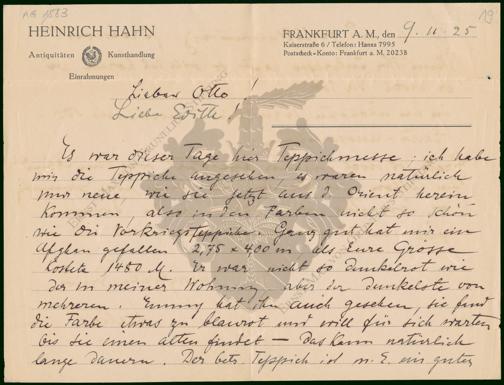 AG 1563
19
HEINRICH HAHN
Antiquitäten Kunsthandlung
Einrahmungen
FRANKFURT A. M., den 9. 11. 25
Kaiserstraße 6 / Telefon: Hansa 7995
Postscheck-Konto: Frankfurt a. M. 20238
Lieber Otto!
Liebe Edith!
Es war dieser Tage hier Teppichmesse, ich habe
mir die Teppiche angesehen es waren natürlich
nur neue wie sie jetzt aus d. Orient herein
kommen, also in den Farben nicht so schön
wie die Vorkriegsteppiche. Ganz gut hat mir ein
Afghan gefallen 2,75 x 4.00 m als Eure Grösse
kostete 1450 M. Er war nicht so dunkelrot wie
der in meiner Wohnung aber der dunkelste von
mehreren. Emmy hat ihn auch gesehen, sie fand
die Farbe etwas zu blaurot und will für sich warten
bis sie einen alten findet — Das kann natürlich
lange dauern. Der betr. Teppich ist m. E. ein guter